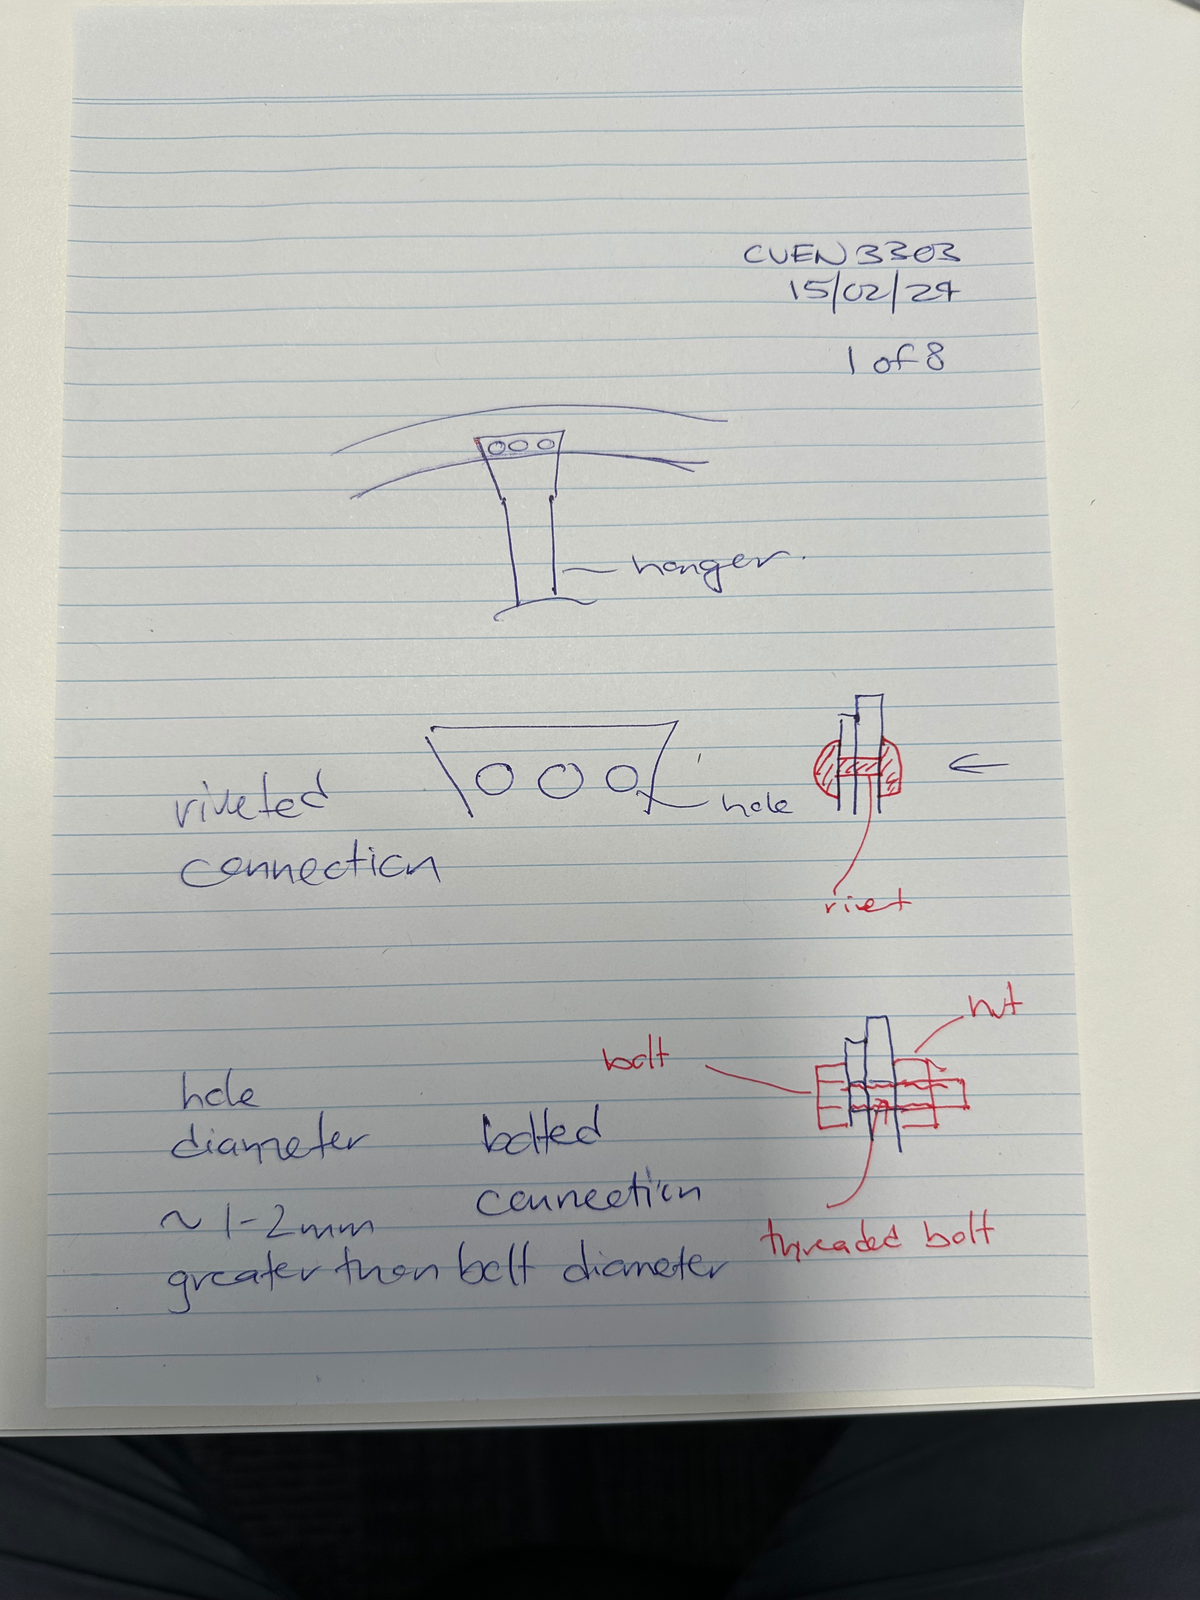 CVEN3303
15/02/24
1 of 8
hanger.
riveted
connection
hole
rivet
nut
bolt
hole
diameter
bolted
connection
~ 1-2mm
threaded bolt
greater than bolt diameter